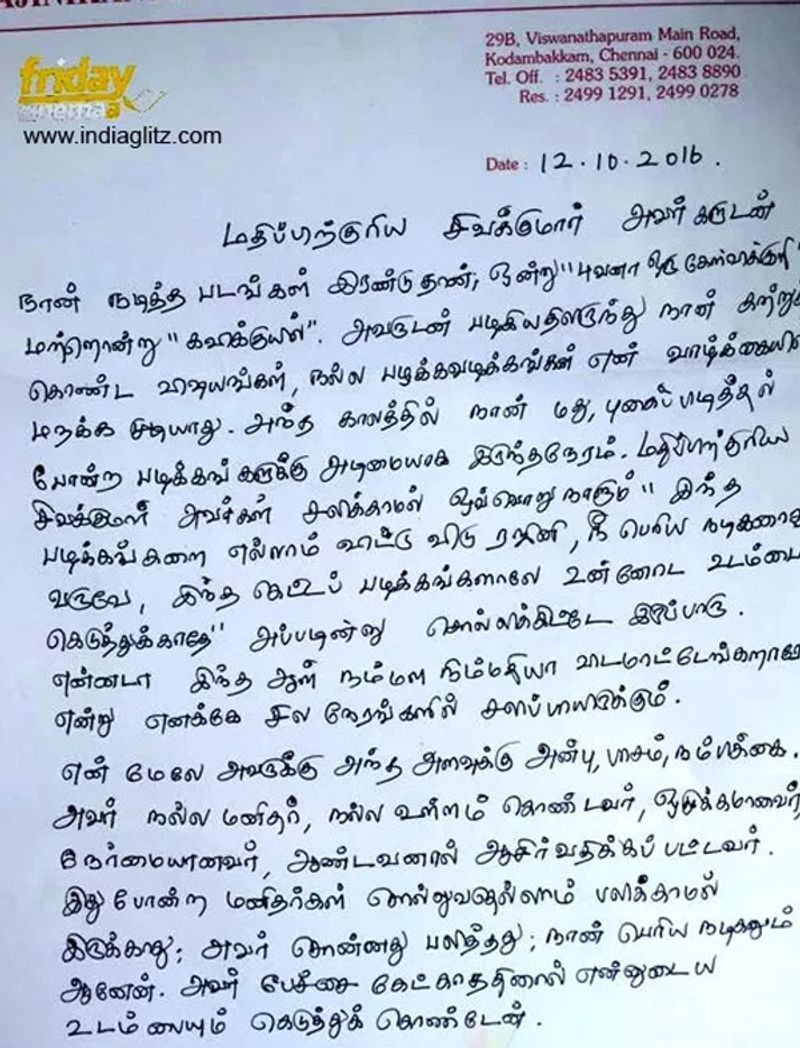 29B, Viswanathapuram Main Road,
Kodambakkam, Chennai - 600 024.
Tel. Off. : 2483 5391, 2483 8890
Res. : 2499 1291, 2499 0278
friday
cinema
www.indiaglitz.com
Date : 12.10.2016.
மதிப்பிற்குரிய சிவக்குமார் அவர்களுடன்
நான் நடித்த படங்கள் இரண்டுதான், ஒன்று "புவனா ஒரு கேள்விக்குறி"
மற்றொன்று "கவிக்குயில்". அவருடன் பழகியதிலிருந்து நான் கற்றுக்
கொண்ட விஷயங்கள், நல்ல பழக்கவழக்கங்கள் என் வாழ்க்கையில்
மறக்க முடியாது. அந்த காலத்தில் நான் மது, புகைப்பிடித்தல்
போன்ற பழக்கங்களுக்கு அடிமையாக இருந்தநேரம். மதிப்பிற்குரிய
சிவக்குமார் அவர்கள் சலிக்காமல் ஒவ்வொருநாளும் " இந்த
பழக்கங்களை எல்லாம் விட்டு விடு ரஜினி, நீ பெரிய நடிகனாக
வருவே, இந்த கெட்டப் பழக்கங்களாலே உன்னோட உடம்பை
கெடுத்துக்காதே" அப்படின்னு சொல்லிக்கிட்டே இருப்பாரு.
என்னடா இந்த ஆள் நம்மள நிம்மதியா விடமாட்டேங்கறாரே
என்று எனக்கே சில நேரங்களில் சலிப்பாயிருக்கும்.
என் மேலே அவருக்கு அந்த அளவுக்கு அன்பு, பாசம், நம்பிக்கை.
அவர் நல்ல மனிதர், நல்ல உள்ளம் கொண்டவர், ஒழுக்கமானவர்,
நேர்மையானவர், ஆண்டவனால் ஆசிர்வதிக்கப் பட்டவர்.
இது போன்ற மனிதர்கள் சொல்லுவதெல்லாம் பலிக்காமல்
இருக்காது; அவர் சொன்னது பலித்தது; நான் பெரிய நடிகனும்
ஆனேன். அவர் பேச்சை கேட்காததினால் என்னுடைய
உடம்பையும் கெடுத்துக் கொண்டேன்.